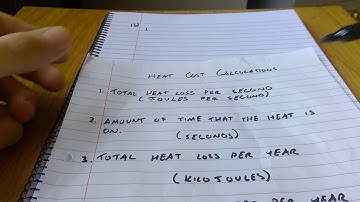 HEAT COST CALCULATIONS
1. TOTAL HEAT LOSS PER SECOND
(JOULES PER SECOND)
2. AMOUNT OF TIME THAT THE HEAT IS
ON. (SECONDS)
3. TOTAL HEAT LOSS PER YEAR
(KILOJOULES)
PER YEAR